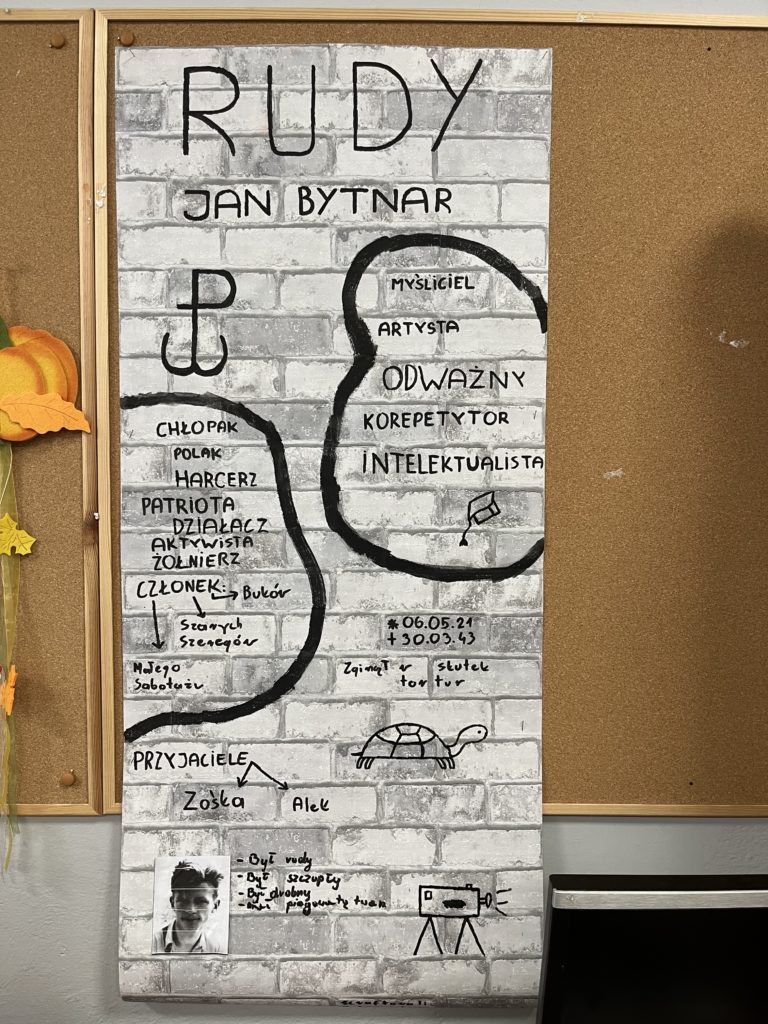 RUDY
JAN BYTNAR
MYŚLICIEL
ARTYSTA
ODWAŻNY
KOREPETYTOR
INTELEKTUALISTA
CHŁOPAK
POLAK
HARCERZ
PATRIOTA
DZIAŁACZ
AKTYWISTA
ŻOŁNIERZ
CZŁONEK: Buków
Szarych
Szeregów
Małego
Sabotażu
* 06.05.21
+ 30.03.43
Zginął w skutek
tortur
PRZYJACIELE
Zośka
Alek
- Był rudy
- Był szczupły
- Był drobny
- piegowatą twarz